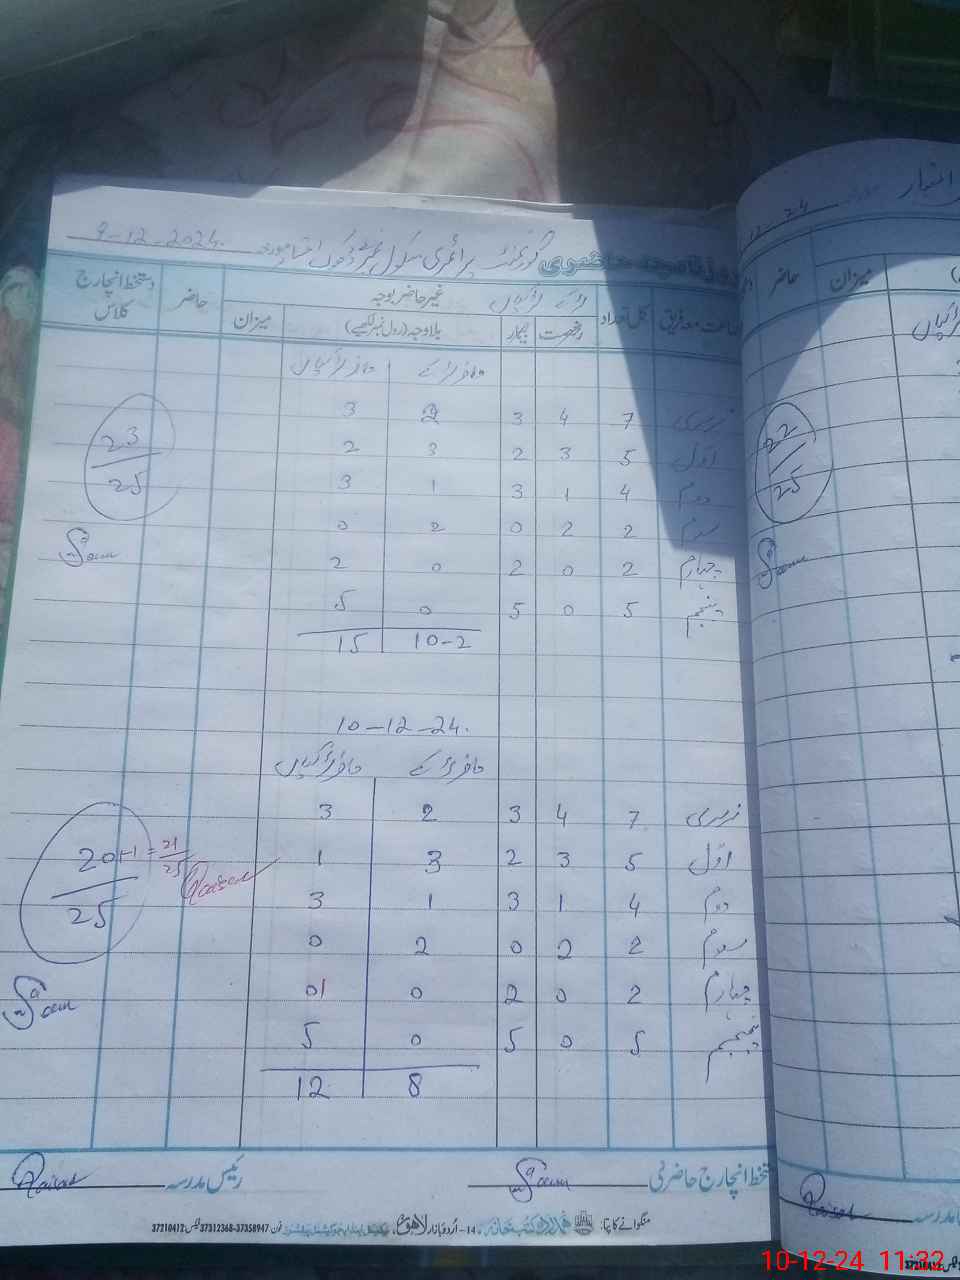 گورنمنٹ پرائمری سکول نمبر مورخہ 9-12-2024.
جماعت معہ فریق کل تعداد لڑکے لڑکیاں غیر حاضر بوجہ حاضر دستخط انچارج کلاس
رخصت بیمار بلاوجہ (رول نمبر لکھیے) میزان
حاضر لڑکے حاضر لڑکیاں
نرسری 7 4 3 2 3
اوّل 5 3 2 3 2
دوم 4 1 3 1 3
سوم 2 2 0 2 0
چہارم 2 0 2 0 2
پنجم 5 0 5 0 5
10-2 15
23/25
10-12-24.
حاضر لڑکے حاضر لڑکیاں
نرسری 7 4 3 2 3
اوّل 5 3 2 3 1
دوم 4 1 3 1 3
سوم 2 2 0 2 0
چہارم 2 0 2 0 01
پنجم 5 0 5 0 5
8 12
20+1 = 21/25
25
دستخط انچارج حاضری رئیس مدرسہ
منگوانے کا پتہ: 14-اُردو بازار لاہور فون: 37312368-37358947 فیکس: 37210412
24
حاضر میزان
22/25
10-12-24 11:32